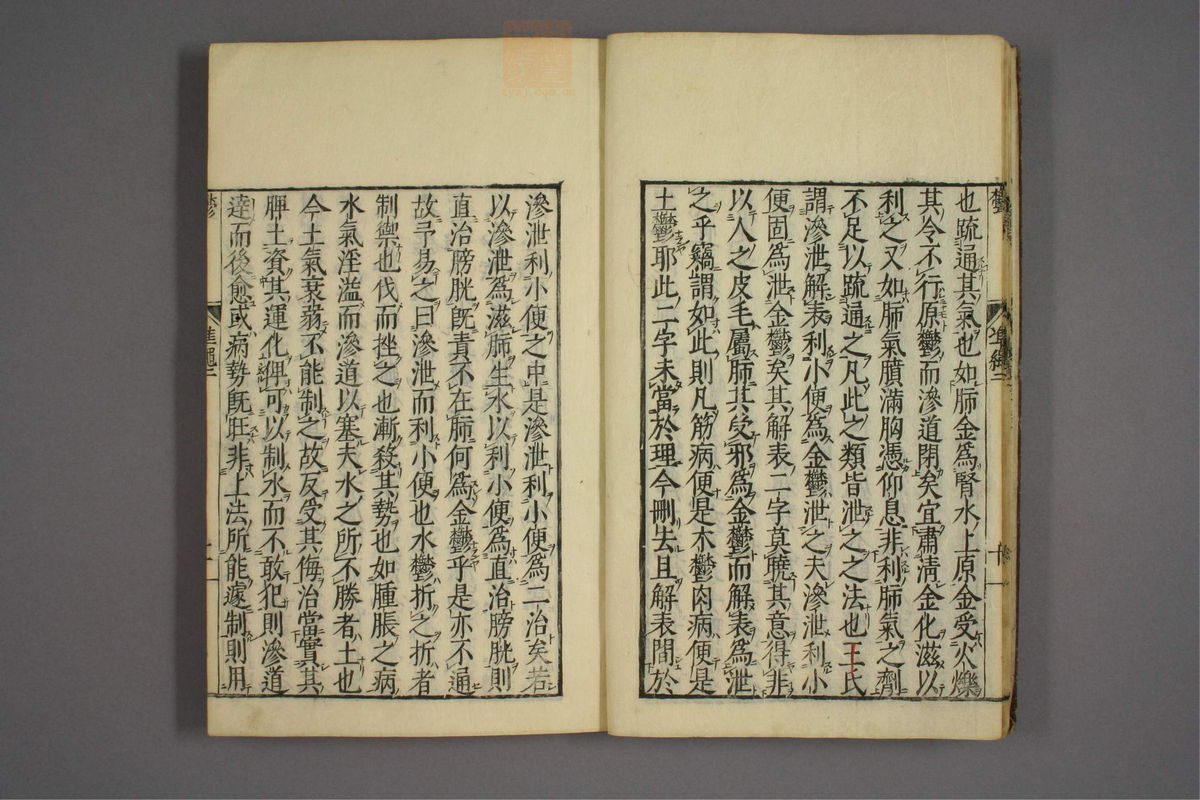 也疏通其氣也如肺金爲腎水上原金受火爍
其令不行原鬱而滲道閉矣宜肅淸金化滋以
利之又如肺氣膹滿胸憑仰息非利肺氣之劑
不足以疏通之凡此之類皆泄之之法也王氏
謂滲泄解表利小便爲金鬱泄之夫滲泄利小
便固爲泄金鬱矣其解表二字莫曉其意得非
以人之皮毛屬肺其受邪爲金鬱而解表爲泄
之乎竊謂如此則凡筋病便是木鬱肉病便是
土鬱耶此二字未當於理今刪去且解表間於
滲泄利小便之中是滲泄利小便爲二治矣若
以滲泄爲滋肺生水以利小便爲直治膀胱則
直治膀胱旣責不在肺何爲金鬱乎是亦不通
故予易之曰滲泄而利小便也水鬱折之折者
制禦也伐而挫之也漸殺其勢也如腫脹之病
水氣淫濫而滲道以塞夫水之所不勝者土也
今土氣衰弱不能制之故反受其侮治當實其
脾土資其運化俾可以制水而不敢犯則滲道
達而後愈或病勢旣旺非上法所能遽制則用
鬱
準繩二